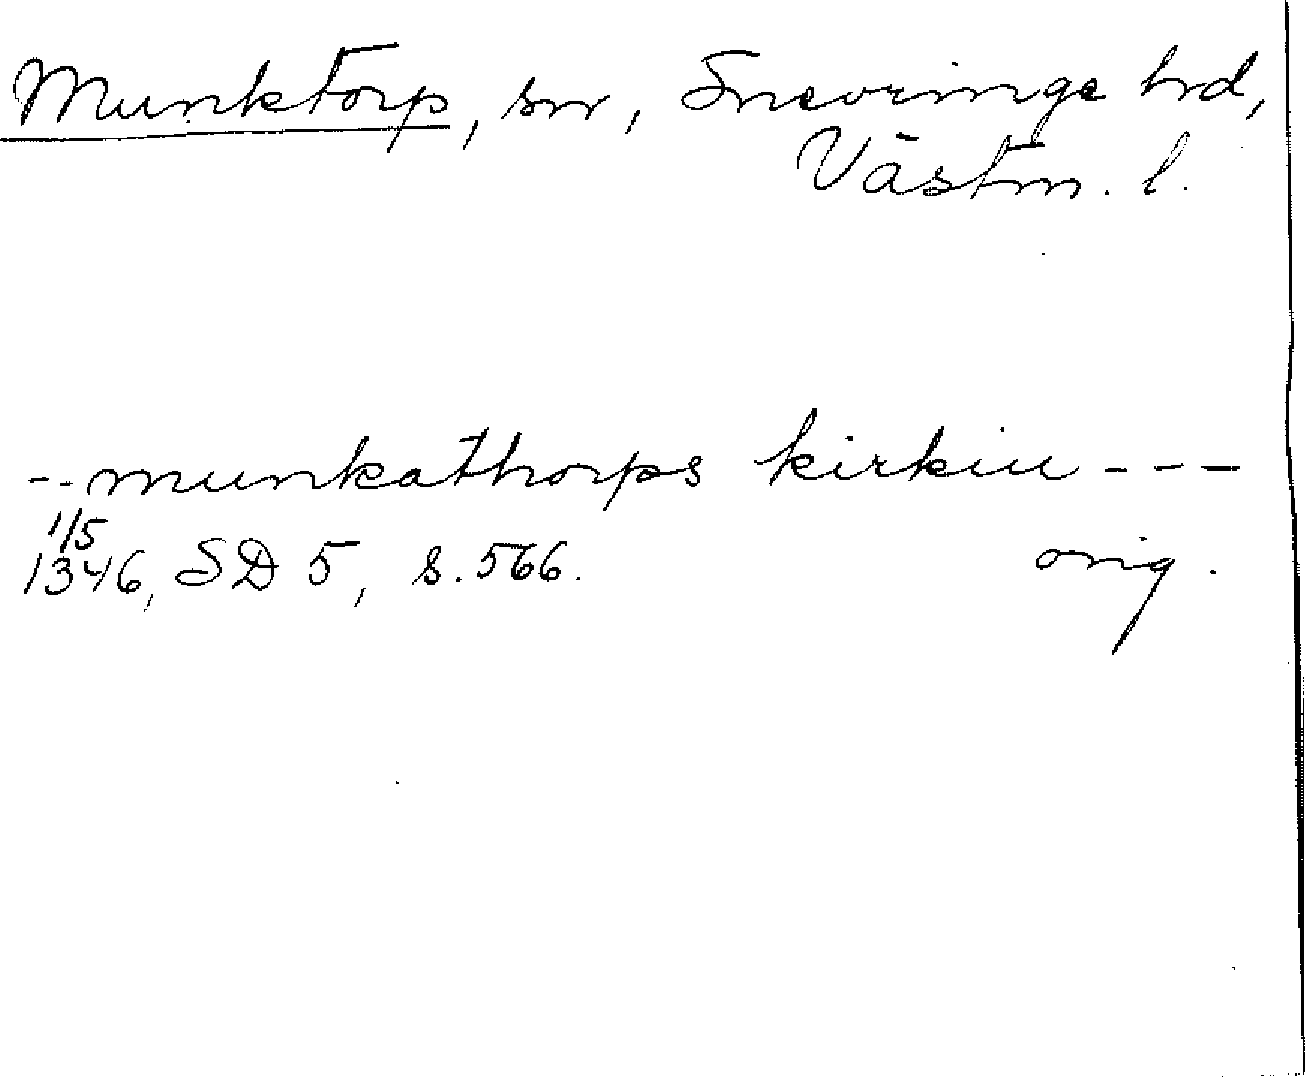 Munktorp, sn, Snevringe hrd,
Västm. l.
-- munkathorps kirkiu ---
1/5
1346, SD 5, s. 566. orig.